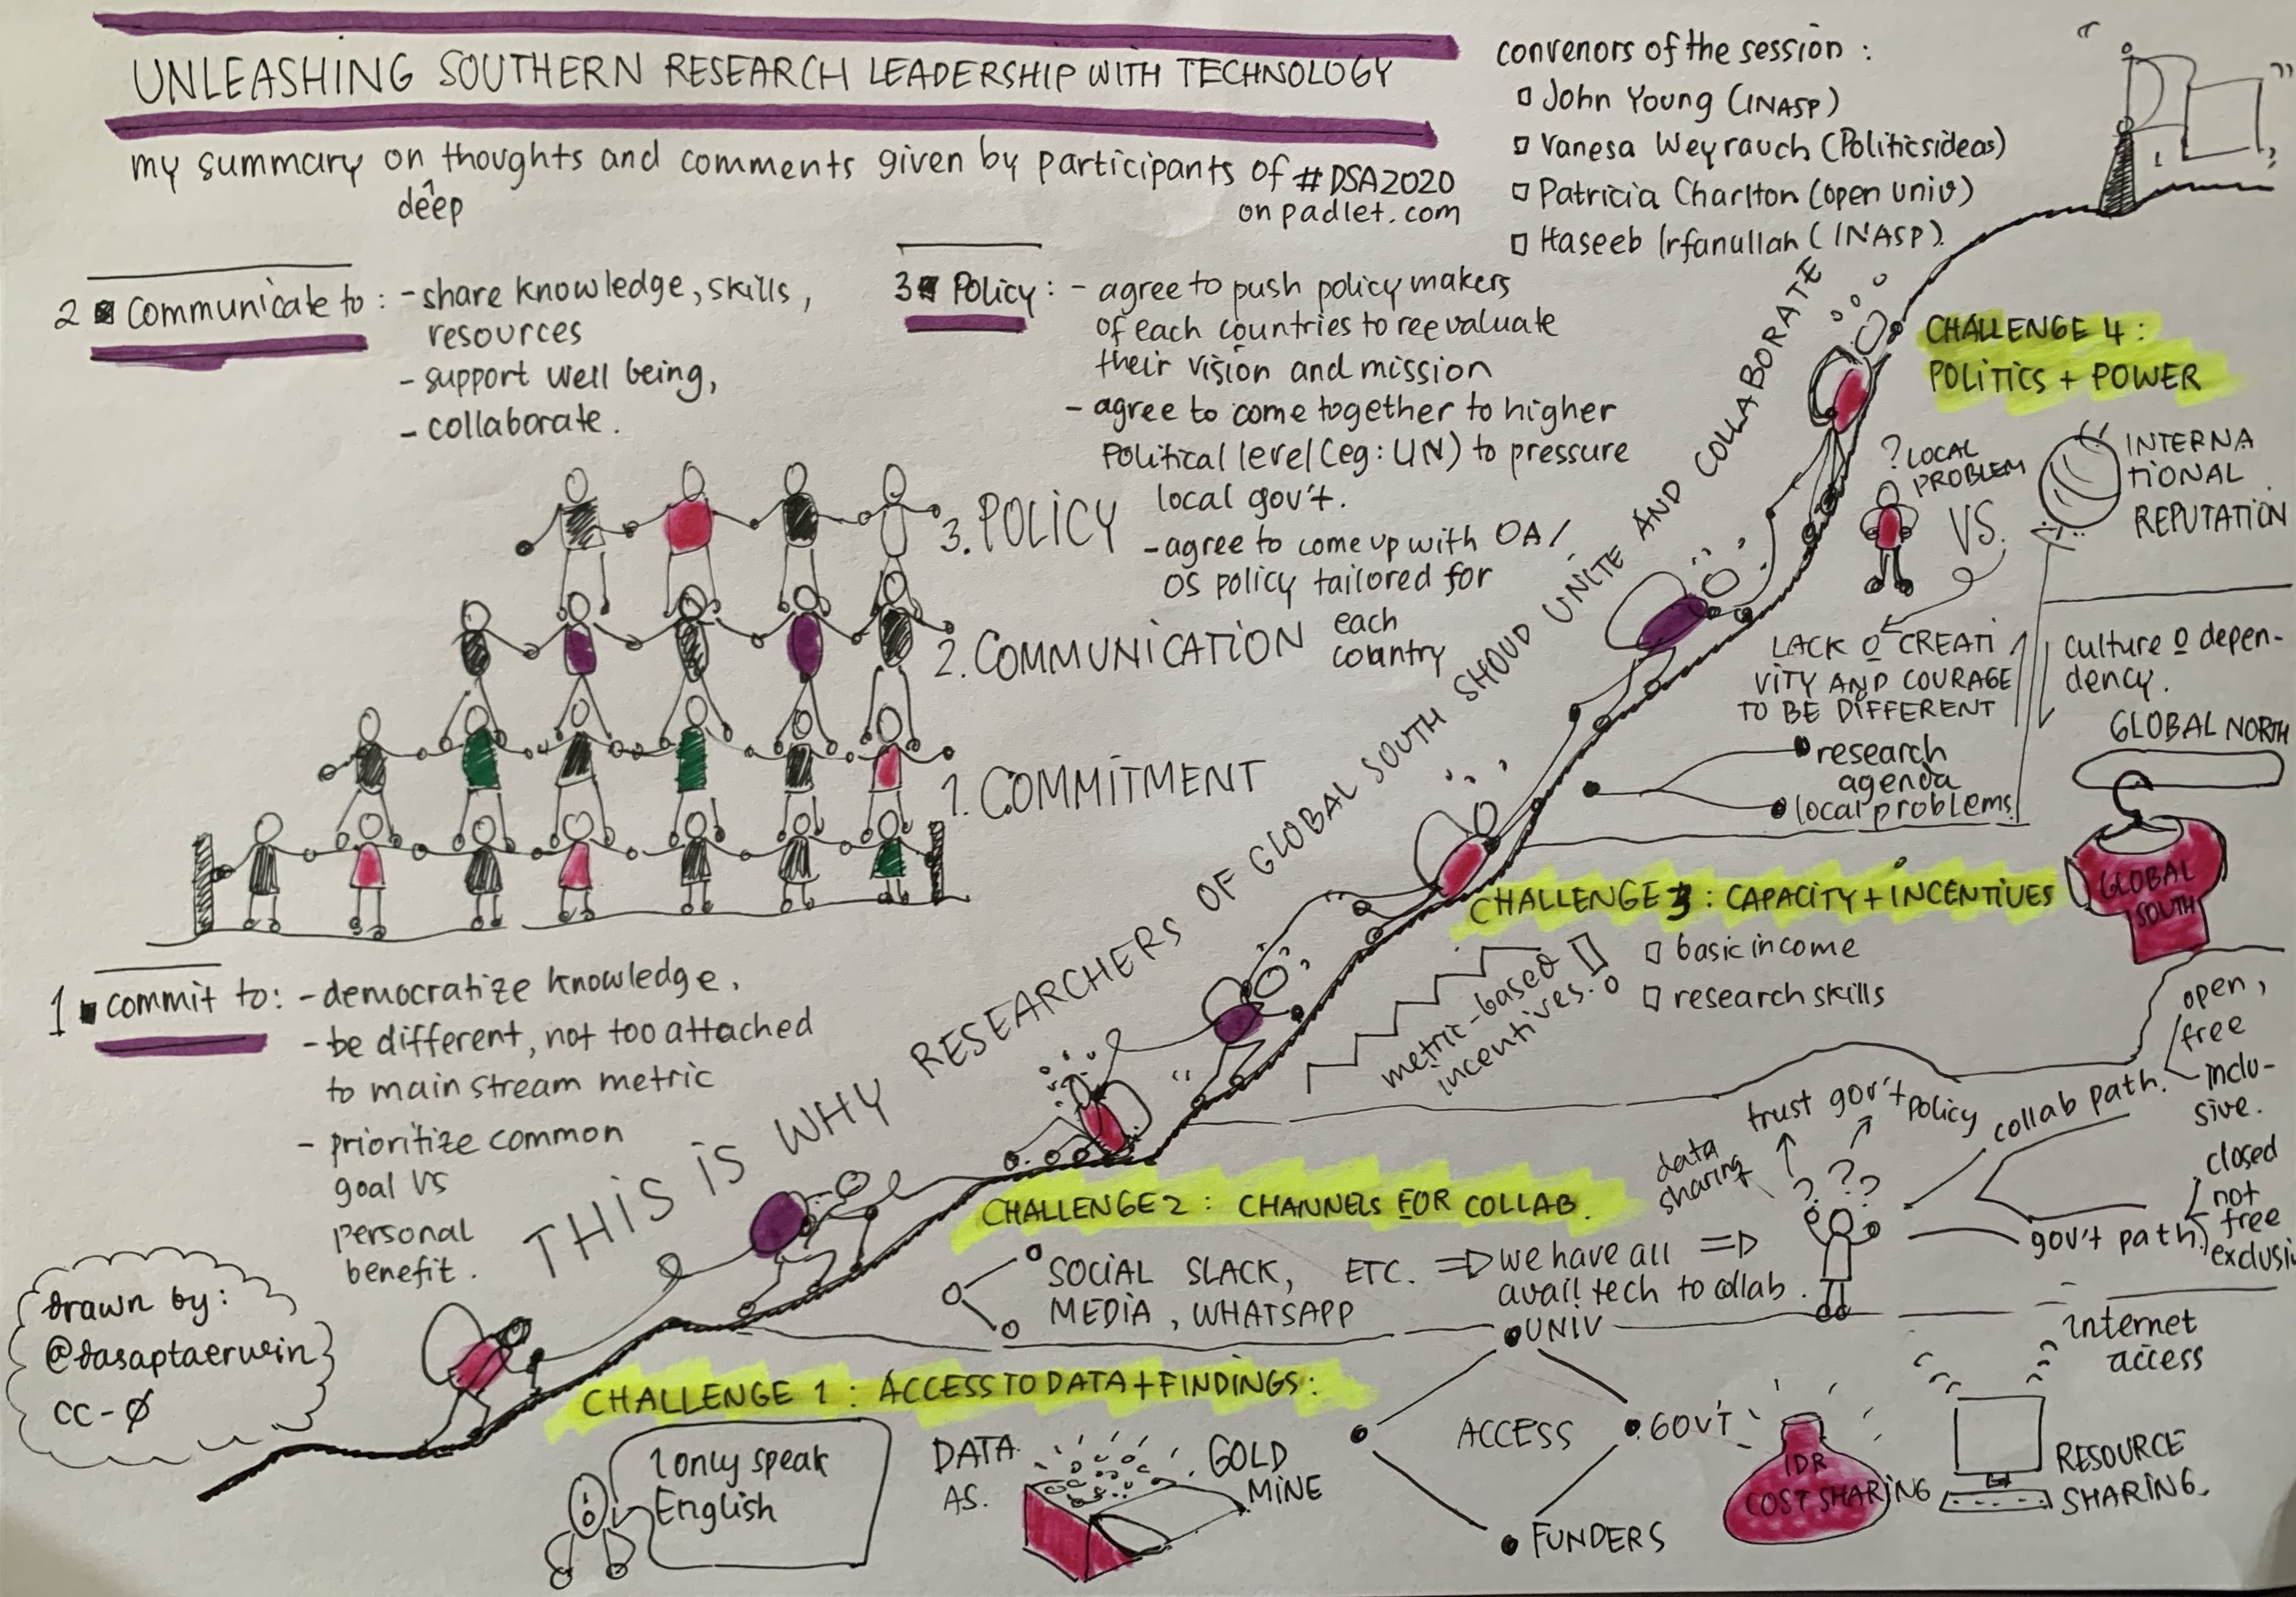 UNLEASHING SOUTHERN RESEARCH LEADERSHIP WITH TECHNOLOGY
my summary on thoughts and comments given by participants of #DSA2020
deep
on padlet.com
convenors of the session :
John Young (INASP)
Vanesa Weyrauch (Politicsideas)
Patricia Charlton (open univ)
Haseeb Irfanullah (INASP)
2 Communicate to : - share knowledge, skills,
resources
- support well being,
- collaborate.
3 Policy : - agree to push policy makers
of each countries to reevaluate
their vision and mission
- agree to come together to higher
Political level (eg: UN) to pressure
local gov't.
- agree to come up with OA/
OS policy tailored for
each
country
3. POLICY
2. COMMUNICATION
1. COMMITMENT
1 commit to: - democratize knowledge,
- be different, not too attached
to main stream metric
- prioritize common
goal vs
personal
benefit.
THIS IS WHY RESEARCHERS OF GLOBAL SOUTH SHOUD UNITE AND COLLABORATE
CHALLENGE 4 :
POLITICS + POWER
? LOCAL
PROBLEM
VS.
INTERNA
TIONAL
REPUTATION
LACK O CREATI
VITY AND COURAGE
TO BE DIFFERENT
culture o depen-
dency.
research
agenda
local problems
GLOBAL NORTH
GLOBAL
SOUTH
CHALLENGE 3 : CAPACITY + INCENTIVES
metric-based
incentives.
basic income
research skills
CHALLENGE 2 : CHANNELS FOR COLLAB.
SOCIAL SLACK, ETC.
MEDIA, WHATSAPP
we have all
avail tech to collab.
data
sharing
trust gov't policy
? ? ? ?
collab path.
open,
free
inclu-
sive.
gov't path
closed
not
free
exclusi
CHALLENGE 1 : ACCESS TO DATA + FINDINGS :
I only speak
English
DATA
AS.
GOLD
MINE
UNIV
ACCESS
GOV'T
FUNDERS
IDR
COST SHARING
internet
access
RESOURCE
SHARING.
drawn by:
@dasaptaerwin
CC-Ø